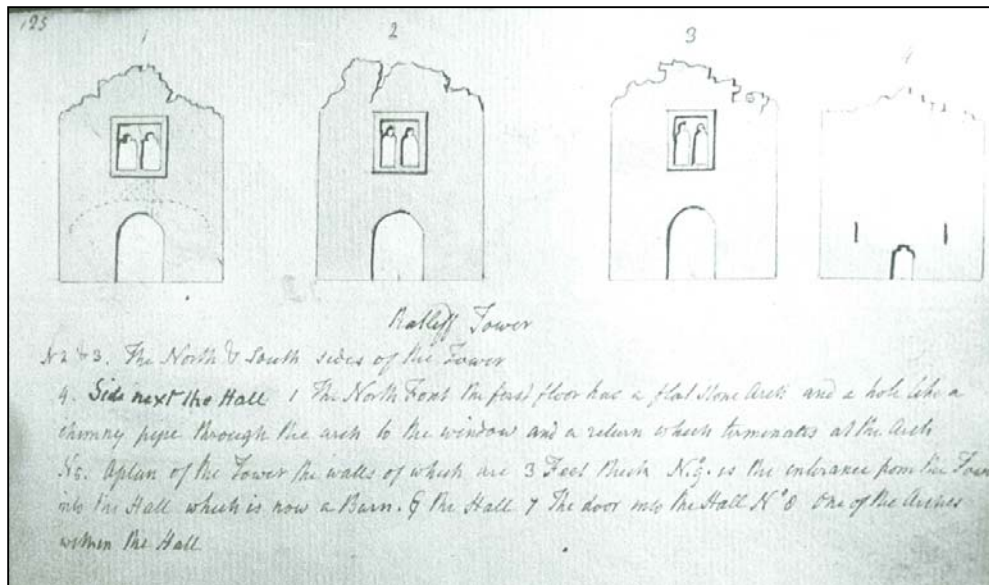 125
1 2 3 4
Ratliff Tower
No 2 & 3. The North & South sides of the Tower
4. Side next the Hall 1 The North Font the first floor has a flat stone Arch and a hole like a
chimny pipe through the arch to the window and a return which terminates at the Arch
No 5. A plan of the Tower the walls of which are 3 Feet thick No 9. is the entrance from the Tower
into the Hall which is now a Barn. 6 the Hall 7 The door into the Hall No 8 One of the Arches
within the Hall